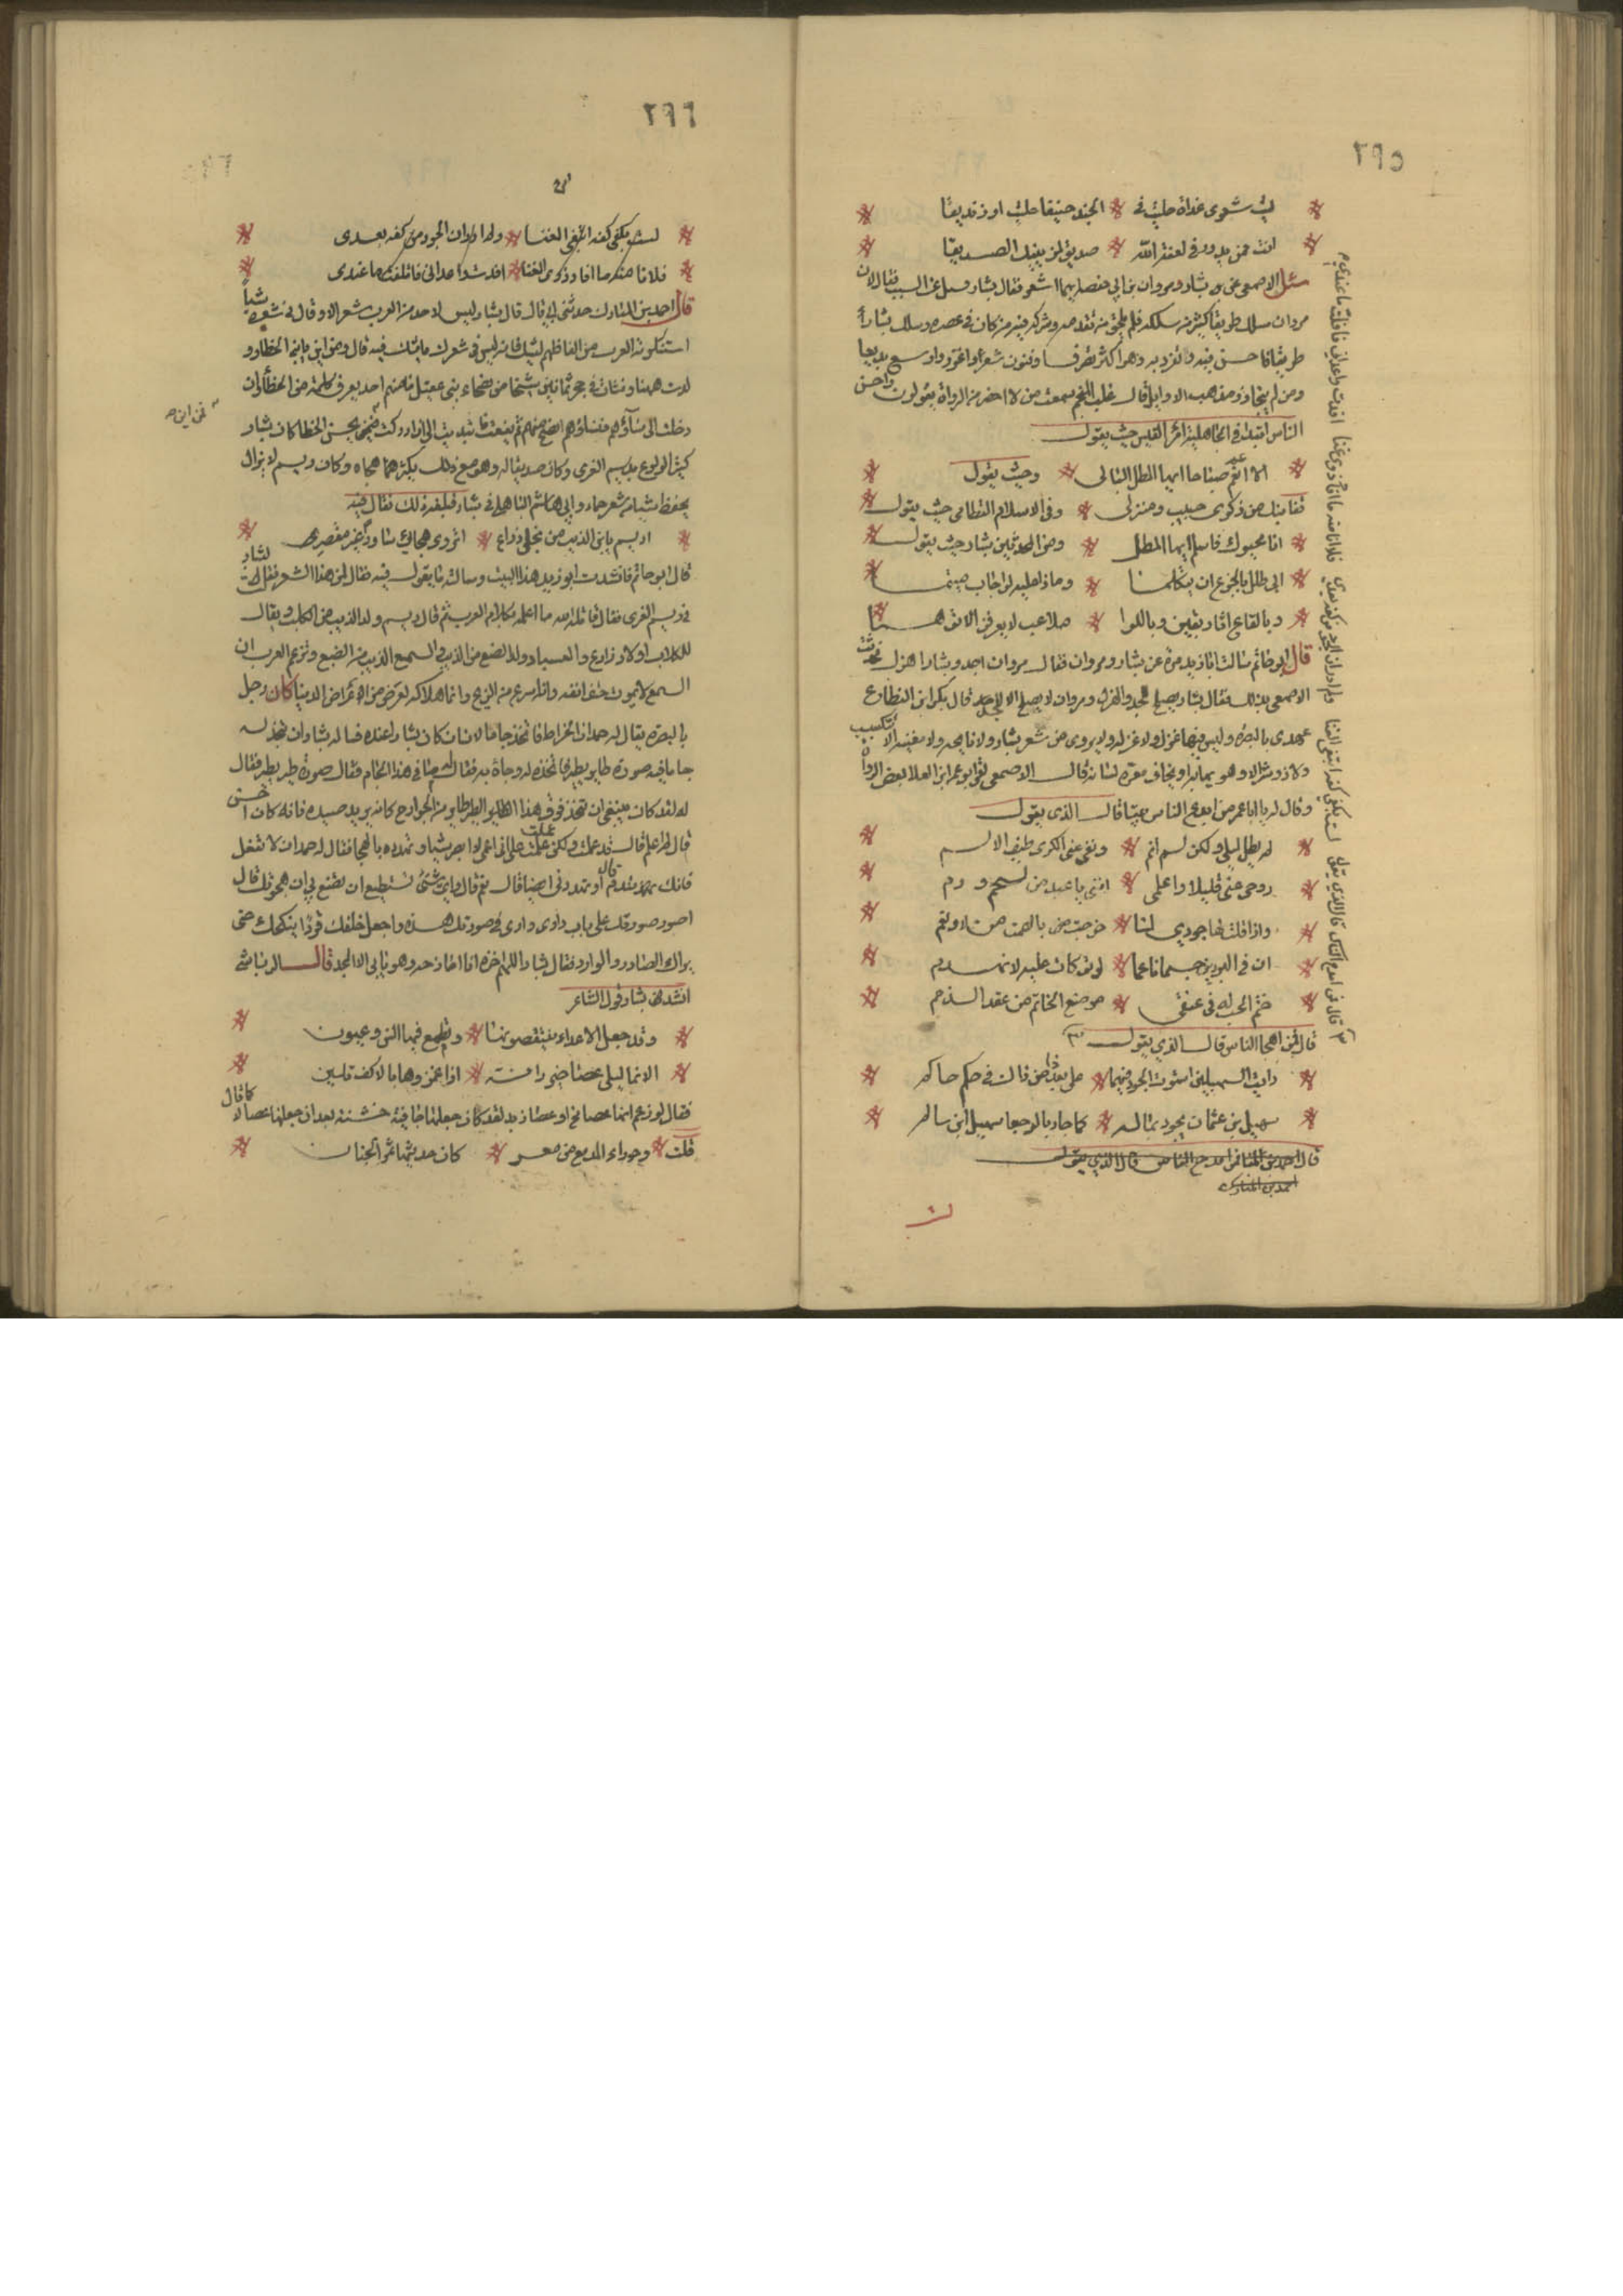 ٢٩٥
ليت شعري غداة حليت في الجند حنيفا حليت او زنديقا
انت ممن يدور في لعنة الله صديق لمن ينيك الصديقا
سئل الاصمعي عن بشار ومروان بن ابي حفصة ايهما اشعر فقال بشار وسئل عن السبب فقال لان
مروان سلك طريقا كثر من سلكه فلم يلحق من تقدمه وشركه فيه من كان في عصره وسلك بشار
طريقا فاحسن فيه وانفرد به وهو اكثر تصرفا وفنون شعر واغزر واوسع بديعا
ومن لم يتجاوز مذاهب الاوايل قال علي المنجم سمعت من لا احصي من الرواة يقولون احسن
الناس ابتداء في الجاهلية امرؤ القيس حيث يقول
الا انعم صباحا ايها الطلل البالي وحيث يقول
قفا نبك من ذكرى حبيب ومنزل وفي الاسلام القطامي حيث يقول
انا محيوك فاسلم ايها الطلل ومن المحدثين بشار حيث يقول
ابى طلل بالجزع ان يتكلما وماذا عليه لو اجاب متيما
وبالقاع اثار بقين وباللوا ملاعب لا يعرفن الا توهما
قال ابو حاتم سالت ابا زيد مرة عن بشار ومروان فقال مروان اجد وبشار اهزل فحدثت
الاصمعي بذلك فقال بشار يصلح للجد والهزل ومروان لا يصلح الا للجد قال بكر ابن النطاح
عهدي بالبصرة وليس فيها غزل ولا غزلة ولا يروي من شعر بشار ولا نايحة ولا مغنية الا تتكسب
ولا ذو شرف الا وهو يهابه ويخاف معرة لسانه قال الاصمعي لقي ابو عمر ابن العلا بعض الرواة
وقال له يا ابا عمر من ابدع الناس بيتا قال الذي يقول
لم يطل ليلي ولكن لم انم ونفى عني الكرى طيف الم
روحي عني قليلا واعلمي انني يا عبد من لحم ودم
واذا قلت لها جودي لنا خرجت بالصمت من لا ونعم
ان في البردين جسما ناحلا لو توكات عليه لانهدم
ختم الحب له في عنقي موضع الخاتم من عقد الذمم
قال فمن اهجا الناس قال الذي يقول
رايت السهيلين استوت الجود فيهما على بعد ذا من ذاك في حكم حاكم
سهيل بن عثمان يجود بماله كما جاد بالوجعا سهيل ابن سالم
قال احمد بن المبارك امدح الناس قال الذي يقول
احمد بن المبارك
قال فمن امدح الناس قال الذي يقول لمست بكفي كفه ابتغي الغنا ولم ادر ان الجود من كفه يعدي فلا انا منه ما افاد ذوي الغنا افدت واعداني فاتلفت ما عندي
٢٩٦
لمست بكفي كفه ابتغي الغنا ولم ادر ان الجود من كفه يعدي
فلا انا منه ما افاد ذوي الغنا افدت واعداني فاتلفت ما عندي
قال احمد بن المبارك حدثني ابي قال قال بشار ليس لاحد من العرب شعر الا وقال في شعره شيئا
استنكرته العرب من الفاظهم ليشك فانه ليس في شعرك ما يشك فيه قال ومن اين ياتي الخطا و
لدت ههنا ونشات في حجر ثمانين شيخا من فصحاء بني عقيل ما منهم احد يعرف كلمة من الخطا وان
دخلت الى نسآؤهم فنساؤهم افصح منهم ثم يفعت فابديت الى ان ادركت يجي الخطا كان بشار
كثير الولوع بديسم العنزي وكان صديقا له وهو مع ذلك يكثر هجاه وكان ديسم لا يزال
يحفظ شيا من شعر حماد وابي هاشم الباهلي في بشار فبلغه ذلك فقال فيه
اديسم يابن الذيب من نجل زارع اتروي هجاي سادرا غير مقصر
قال ابو حاتم فانشدت ابو زيد هذا البيت وسالته ما يقول فيه فقال لمن هذا الشعر فقلت لبشار
في ديسم العنزي فقال قاتله الله ما اعلمه بكلام العرب ثم قال ديسم ولد الذيب من الكلبة ويقال
للكلاب اولاد زارع والعسبار ولد الضبع من الذيب والسمع الذيب من الضبع وتزعم العرب ان
السمع لا يموت حتف انفه وانه اسرع من الريح وانما هلاكه بعرض من اعراض الدنيا كان رجل
بالبصرة يقال له حمدان الخراط فاتخذ جاما لانسان كان بشار عنده فساله بشار ان يتخذ له
جاما فيه صورة طاير يطير فاتخذه له وجاء به فقال له ما في هذا الجام فقال صورة طير يطير فقال
له لقد كان ينبغي ان تتخذ فوق هذا الطاير طاير من الجوارح كانه يريد صيده فانه كان احسن
قال لم اعلم قال قد علمت ولكن علمت على اني اعمى لا ابصر شيا وتهدده بالهجا فقال له حمدان لا تفعل
فانك تندم قال او تهددني ايضا قال نعم قال واي شئ تستطيع ان تصنع بي ان هجوتك قال
اصور صورتك على باب داري في صورتك هذه واجعل خلفك قردا ينكحك حتى
يراك الصادر والوارد فقال بشار اللهم اخزه انا امازحه وهو يابى الا الجد قال الرياشي
انشد من بشار قول الشاعر
وقد جعل الاعداء ينتقصوننا وتطمع فينا السن وعيون
الا انما ليلى عصا خيزرانة اذا غمزوها بالاكف تلين
فقال لو زعم انها عصا مخ او عصا زبد لقد كان جعلها جافية خشنة بعد ان جعلها عصا الا كما قال
قلت وحوراء المدامع من معد كان حديثها ثمر الجنان